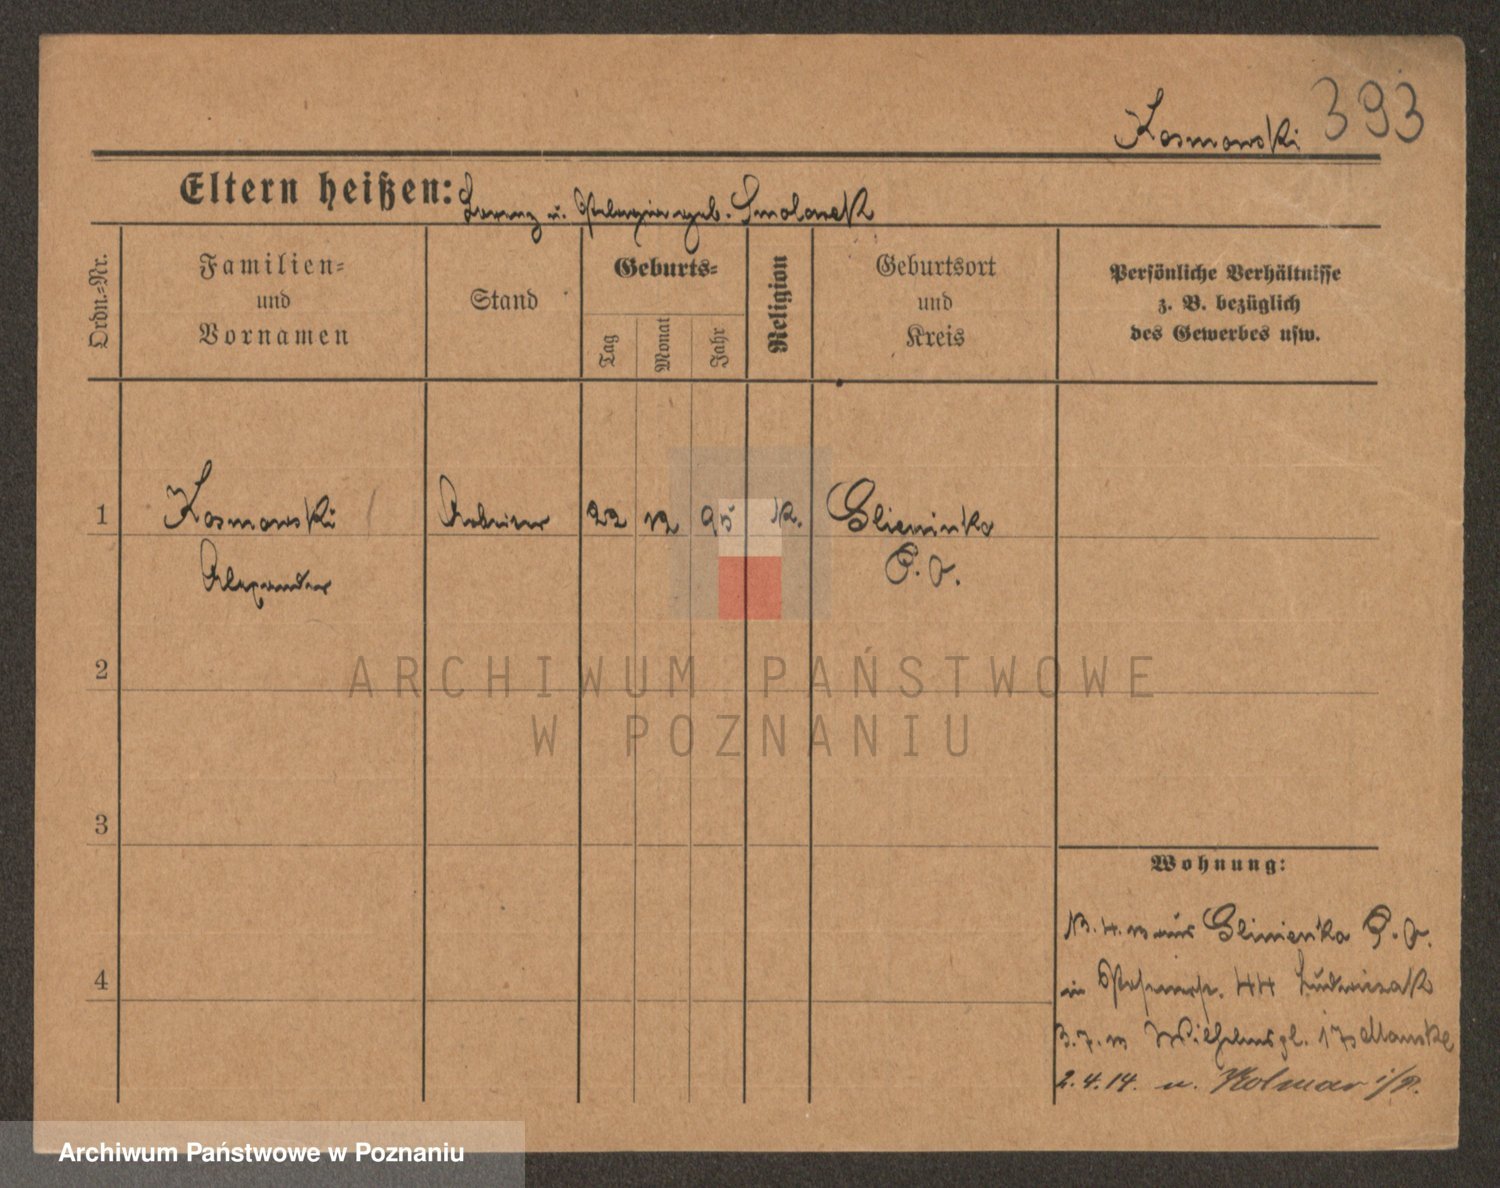 Kosmowski 393
Eltern heißen: Lorenz u. Pelagia geb. Smolarek
Ordn.-Nr.
Familien-
und
Vornamen
Stand
Geburts-
Tag
Monat
Jahr
Religion
Geburtsort
und
Kreis
Persönliche Verhältnisse
z. B. bezüglich
des Gewerbes usw.
1 Kosmowski Arbeiter 22 12 95 K. Glieninka
Alexander P. O.
2
3
4
Wohnung:
aus Glinienka P. O.
in 44 Ludwiczak
Wilhelmspl. Manske
2.4.14. n. Kolmar i/P.
ARCHIWUM PAŃSTWOWE
W POZNANIU
Archiwum Państwowe w Poznaniu